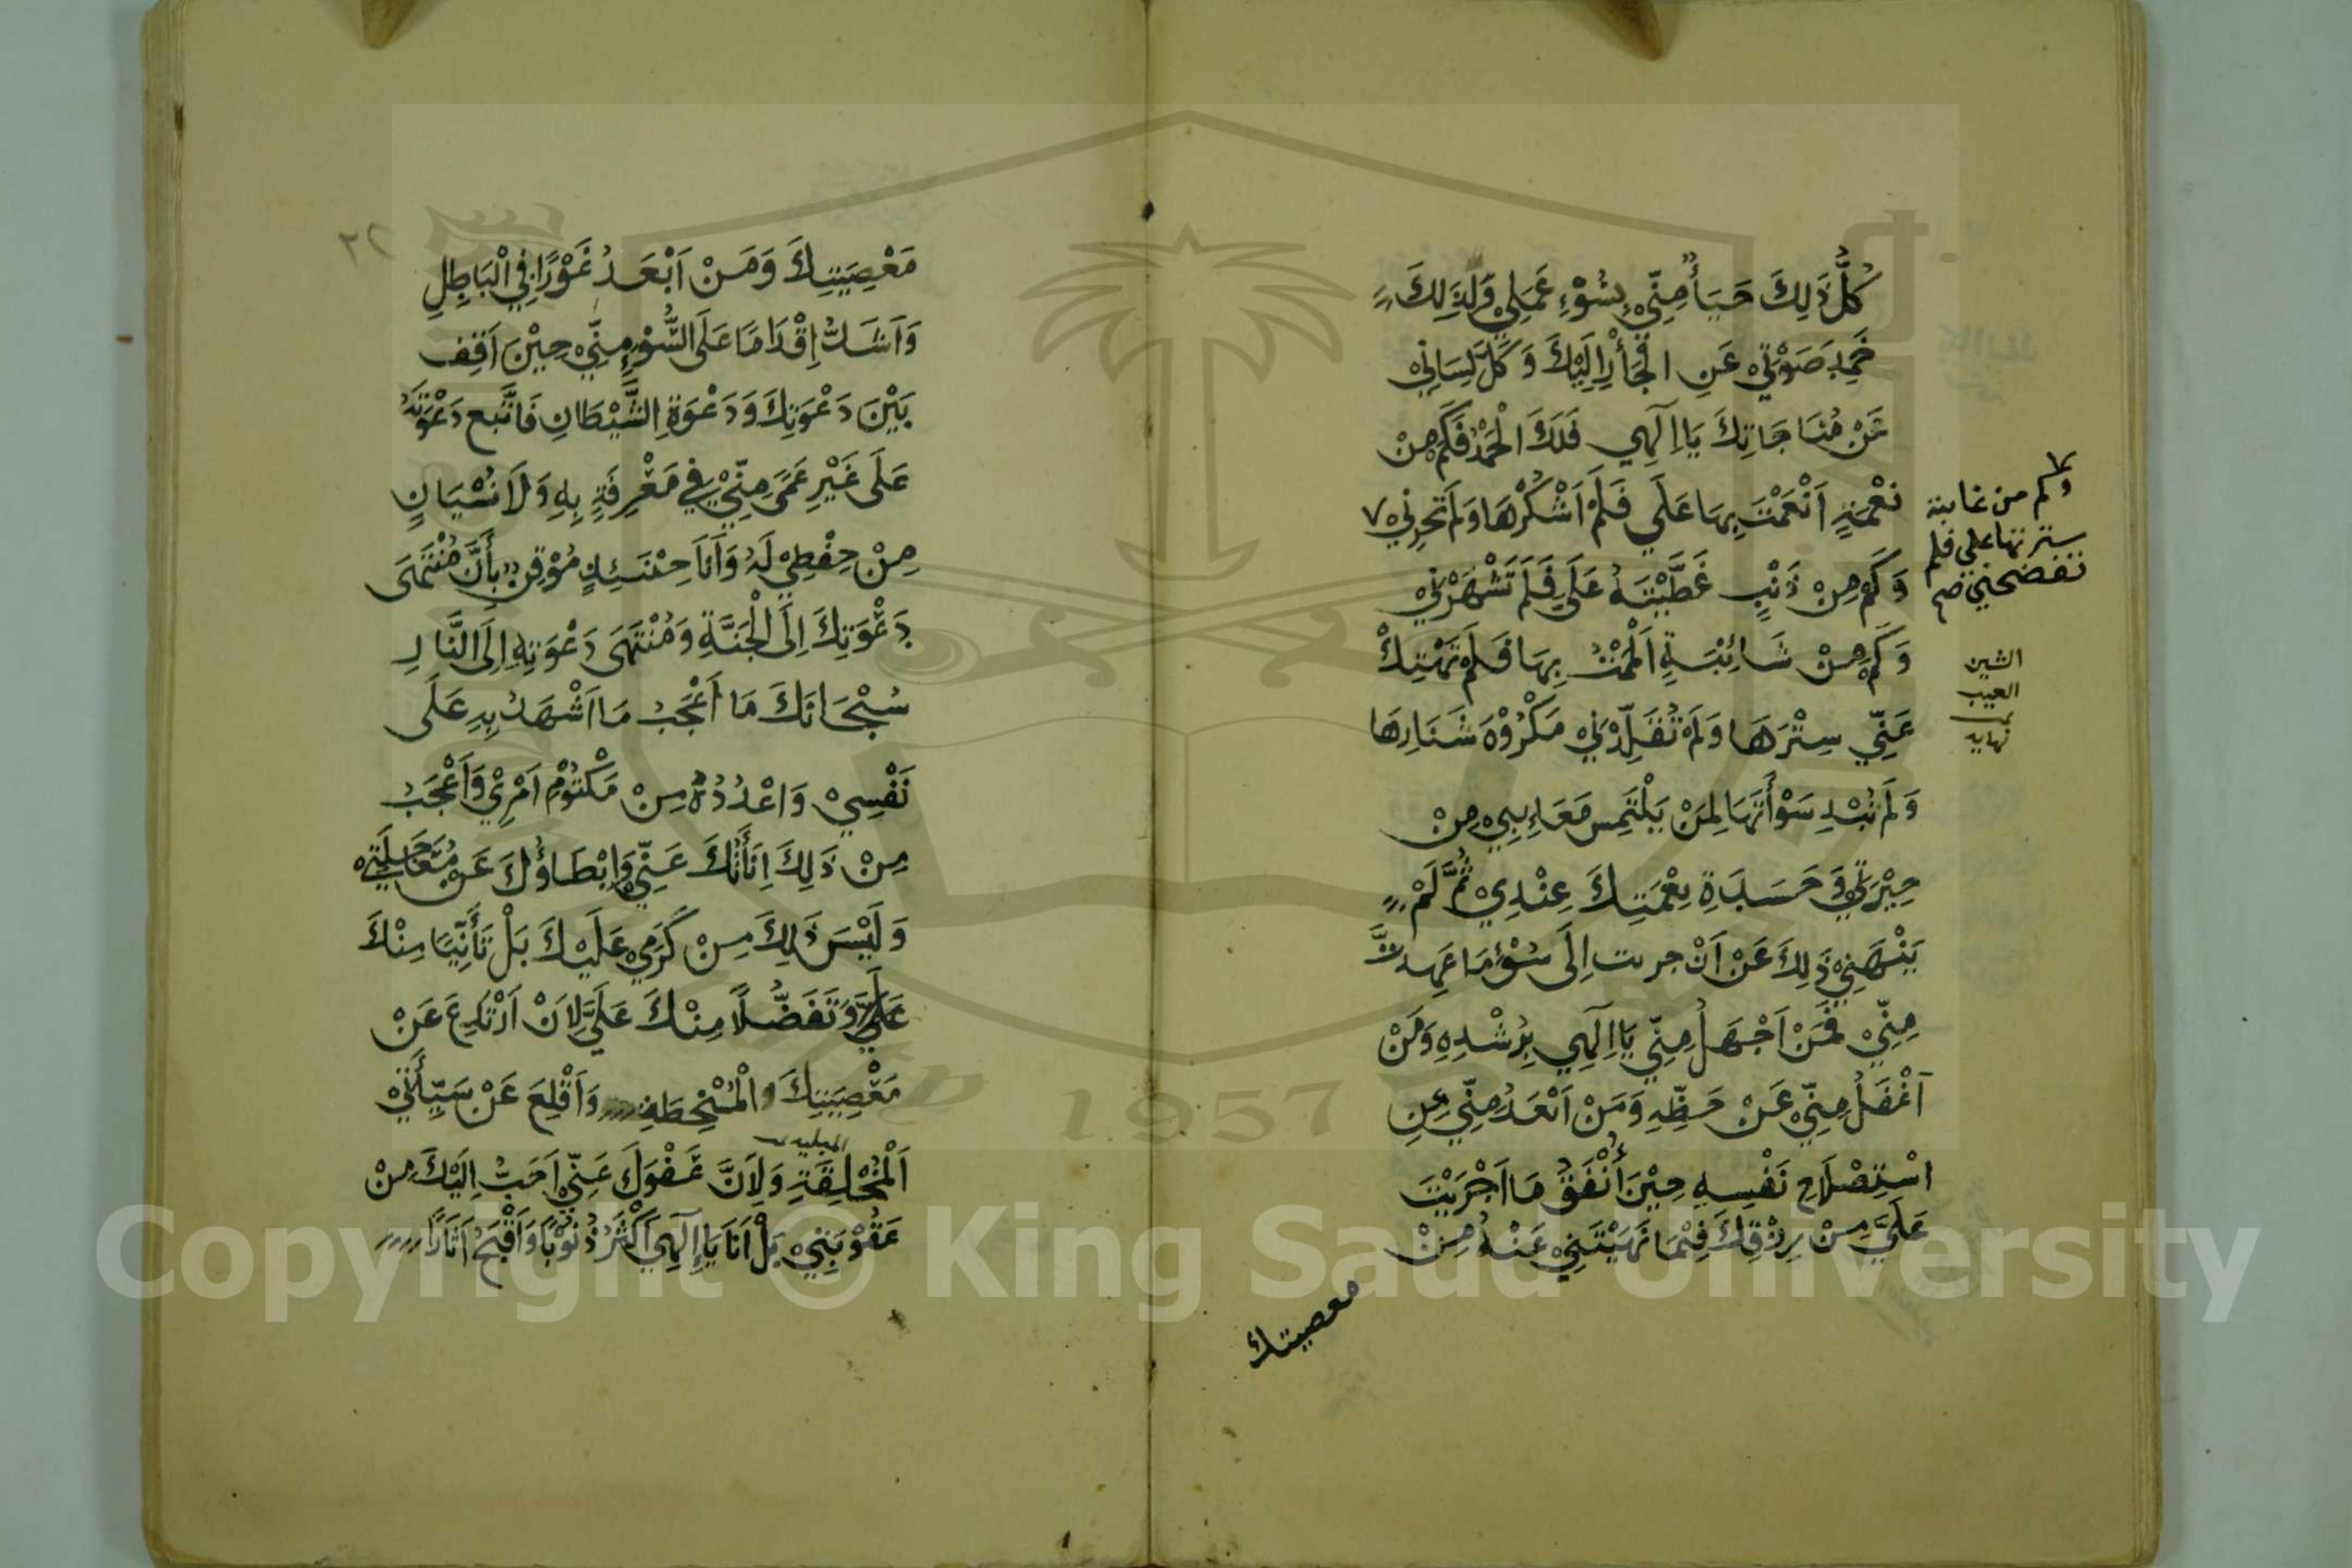 كُلُّ ذَلِكَ حَيَاءً مِنِّيْ بِسُوْءِ عَمَلِيْ وَلِذَلِكَ
خَمِدَ صَوْتِيْ عَنِ الْجَأْرِ اِلَيْكَ وَكَلَّ لِسَانِيْ
عَنْ مُنَاجَاتِكَ يَا اِلَهِي فَلَكَ الْحَمْدُ فَكَمْ مِنْ
نِعْمَةٍ اَنْعَمْتَ بِهَا عَلَي فَلَمْ اَشْكُرْهَا وَلَمْ تَحْرِمْنِيْ ٧
وَكَمْ مِنْ ذَنْبٍ غَطَّيْتَهُ عَلَيَّ فَلَمْ تَشْهَرْنِيْ
وَكَمْ مِنْ شَائِبَةٍ اَلْمَمْتُ بِهَا فَلَمْ تَهْتِكْ
عَنِّي سِتْرَهَا وَلَمْ تُقَلِّدْنِيْ مَكْرُوْهَ شَنَارِهَا
وَلَمْ تُبْدِ سَوْأَتَهَا لِمَنْ يَلْتَمِسُ مَعَايِبِيْ مِنْ
جِيْرَتِيْ وَحَسَدَةِ نِعْمَتِكَ عِنْدِيْ ثُمَّ لَمْ
يَنْهَنِيْ ذَلِكَ عَنْ اَنْ جريت اِلَى سُوْءِ مَا عَهِدْتَّ
مِنِّيْ فَمَنْ اَجْهَلُ مِنِّي يَا اِلَهِي بِرُشْدِهِ وَمَنْ
اَغْفَلُ مِنِّيْ عَنْ حَظِّهِ وَمَنْ اَبْعَدُ مِنِّي عَنِ
اسْتِصْلَاحِ نَفْسِهِ حِيْنَ أُنْفِقُ مَا اَجْرَيْتَ
عَلَيَّ مِنْ رِزْقِكَ فِيْمَا نَهَيْتَنِيْ عَنْهُ مِنْ
معصيتك
وكم من غابية
سترتها علي فلم
تفضحني صح
الشين
العيب
نهايه
٢٢
مَعْصِيَتِكَ وَمَنْ اَبْعَدُ غَوْرًا فِي الْبَاطِلِ
وَاَشَدُّ اِقْدَامًا عَلَى السُّوْءِ مِنِّيْ حِيْنَ اَقِف
بَيْنَ دَعْوَتِكَ وَدَعْوَةِ الشَّيْطَانِ فَاتَّبِع دَعْوَتَهُ
عَلَى غَيْرِ عَمًى مِنِّيْ فِي مَعْرِفَةٍ بِهِ وَلَا نِسْيَانٍ
مِنْ حِفْظِيْ لَهُ وَاَنَا حِيْنَئِذٍ مُوْقِنٌ بِأَنَّ مُنْتَهَى
دَعْوَتِكَ اِلَى الْجَنَّةِ وَمُنْتَهَى دَعْوَتِهِ اِلَى النَّارِ
سُبْحَانَكَ مَا اَعْجَبُ مَا اَشْهَدُ بِهِ عَلَى
نَفْسِيْ وَاعْدُدُهُ مِنْ مَكْتُوْمِ اَمْرِيْ وَاَعْجَبُ
مِنْ ذَلِكَ اَنَاتُكَ عَنِّيْ وَاِبْطَاؤُكَ عَنْ مُعَاجَلَتِيْ
وَلَيْسَ ذَلِكَ مِنْ كَرَمِيْ عَلَيْكَ بَلْ تَأَنِّيًا مِنْكَ
عَلَيَّ وَتَفَضُّلًا مِنْكَ عَلَيَّ لِاَنْ اَرْتَدِعَ عَنْ
مَعْصِيَتِكَ الْمُسْخِطَةِ وَاُقْلِعَ عَنْ سَيِّأَتِيْ
اَلْمُخْلِقَةِ وَلِاَنَّ عَفْوَكَ عَنِّيْ اَحَبُّ اِلَيْكَ مِنْ
عَقُوْبَتِيْ بَلْ اَنَا يَا اِلَهِي اَكْثَرُ ذُنُوْبًا وَاَقْبَحُ اَثَارًا